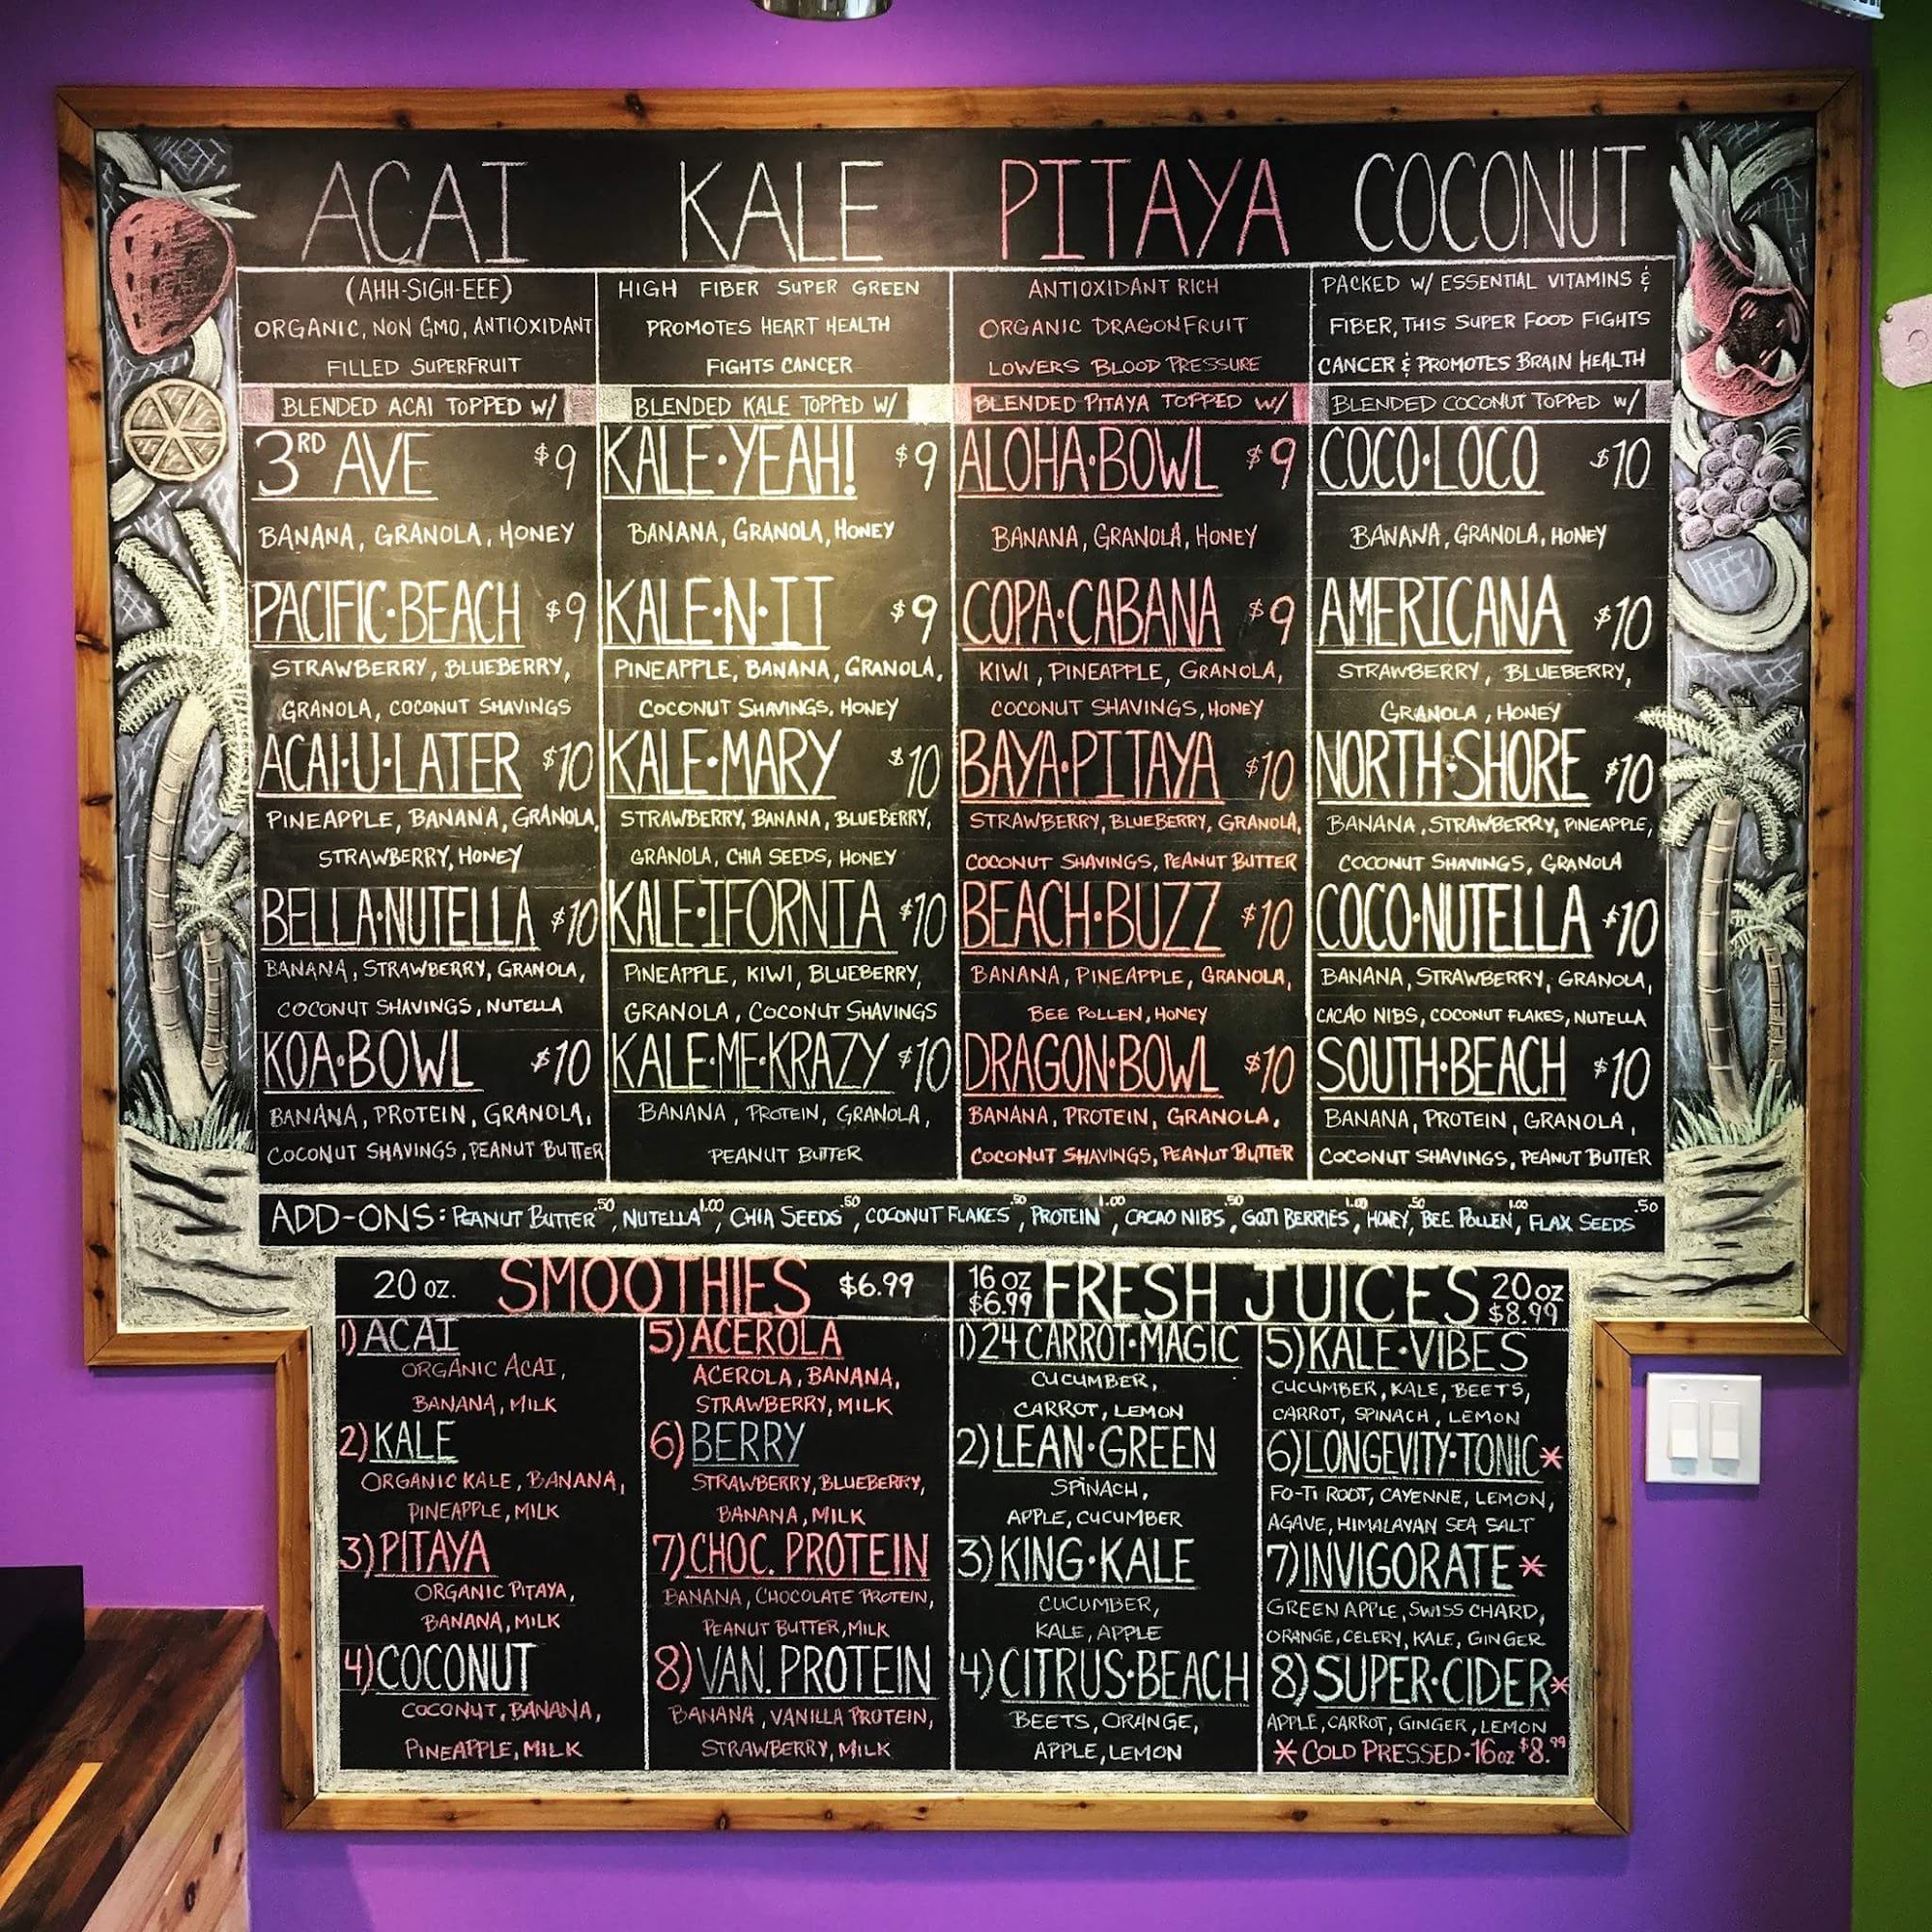 ACAI
(AHH-SIGH-EEE)
ORGANIC, NON GMO, ANTIOXIDANT
FILLED SUPERFRUIT
BLENDED ACAI TOPPED W/
3RD AVE $9
BANANA, GRANOLA, HONEY
PACIFIC•BEACH $9
STRAWBERRY, BLUEBERRY,
GRANOLA, COCONUT SHAVINGS
ACAI•U•LATER $10
PINEAPPLE, BANANA, GRANOLA,
STRAWBERRY, HONEY
BELLA•NUTELLA $10
BANANA, STRAWBERRY, GRANOLA,
COCONUT SHAVINGS, NUTELLA
KOA•BOWL $10
BANANA, PROTEIN, GRANOLA,
COCONUT SHAVINGS, PEANUT BUTTER
KALE
HIGH FIBER SUPER GREEN
PROMOTES HEART HEALTH
FIGHTS CANCER
BLENDED KALE TOPPED W/
KALE•YEAH! $9
BANANA, GRANOLA, HONEY
KALE•N•IT $9
PINEAPPLE, BANANA, GRANOLA,
COCONUT SHAVINGS, HONEY
KALE•MARY $10
STRAWBERRY, BANANA, BLUEBERRY,
GRANOLA, CHIA SEEDS, HONEY
KALE•IFORNIA $10
PINEAPPLE, KIWI, BLUEBERRY,
GRANOLA, COCONUT SHAVINGS
KALE•ME•KRAZY $10
BANANA, PROTEIN, GRANOLA,
PEANUT BUTTER
PITAYA
ANTIOXIDANT RICH
ORGANIC DRAGONFRUIT
LOWERS BLOOD PRESSURE
BLENDED PITAYA TOPPED W/
ALOHA•BOWL $9
BANANA, GRANOLA, HONEY
COPA•CABANA $9
KIWI, PINEAPPLE, GRANOLA,
COCONUT SHAVINGS, HONEY
BAYA•PITAYA $10
STRAWBERRY, BLUEBERRY, GRANOLA,
COCONUT SHAVINGS, PEANUT BUTTER
BEACH•BUZZ $10
BANANA, PINEAPPLE, GRANOLA,
BEE POLLEN, HONEY
DRAGON•BOWL $10
BANANA, PROTEIN, GRANOLA,
COCONUT SHAVINGS, PEANUT BUTTER
COCONUT
PACKED W/ ESSENTIAL VITAMINS &
FIBER, THIS SUPER FOOD FIGHTS
CANCER & PROMOTES BRAIN HEALTH
BLENDED COCONUT TOPPED W/
COCO•LOCO $10
BANANA, GRANOLA, HONEY
AMERICANA $10
STRAWBERRY, BLUEBERRY,
GRANOLA, HONEY
NORTH•SHORE $10
BANANA, STRAWBERRY, PINEAPPLE,
COCONUT SHAVINGS, GRANOLA
COCO•NUTELLA $10
BANANA, STRAWBERRY, GRANOLA,
CACAO NIBS, COCONUT FLAKES, NUTELLA
SOUTH•BEACH $10
BANANA, PROTEIN, GRANOLA,
COCONUT SHAVINGS, PEANUT BUTTER
ADD-ONS: PEANUT BUTTER .50, NUTELLA 1.00, CHIA SEEDS .50, COCONUT FLAKES .50, PROTEIN 1.00, CACAO NIBS .50, GOJI BERRIES 1.00, HONEY .50, BEE POLLEN 1.00, FLAX SEEDS .50
20 OZ. SMOOTHIES $6.99
1) ACAI
ORGANIC ACAI,
BANANA, MILK
2) KALE
ORGANIC KALE, BANANA,
PINEAPPLE, MILK
3) PITAYA
ORGANIC PITAYA,
BANANA, MILK
4) COCONUT
COCONUT, BANANA,
PINEAPPLE, MILK
5) ACEROLA
ACEROLA, BANANA,
STRAWBERRY, MILK
6) BERRY
STRAWBERRY, BLUEBERRY,
BANANA, MILK
7) CHOC. PROTEIN
BANANA, CHOCOLATE PROTEIN,
PEANUT BUTTER, MILK
8) VAN. PROTEIN
BANANA, VANILLA PROTEIN,
STRAWBERRY, MILK
16 OZ $6.99 FRESH JUICES 20 OZ $8.99
1) 24 CARROT•MAGIC
CUCUMBER,
CARROT, LEMON
2) LEAN•GREEN
SPINACH,
APPLE, CUCUMBER
3) KING•KALE
CUCUMBER,
KALE, APPLE
4) CITRUS•BEACH
BEETS, ORANGE,
APPLE, LEMON
5) KALE•VIBES
CUCUMBER, KALE, BEETS,
CARROT, SPINACH, LEMON
6) LONGEVITY•TONIC*
FO-TI ROOT, CAYENNE, LEMON,
AGAVE, HIMALAYAN SEA SALT
7) INVIGORATE*
GREEN APPLE, SWISS CHARD,
ORANGE, CELERY, KALE, GINGER
8) SUPER•CIDER*
APPLE, CARROT, GINGER, LEMON
* COLD PRESSED•16oz $8.99